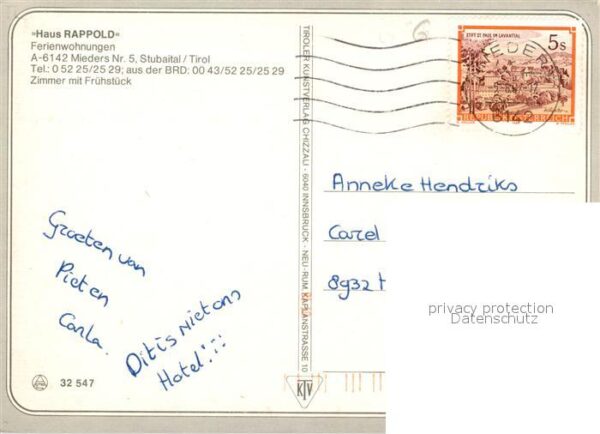 »Haus RAPPOLD«
Ferienwohnungen
A-6142 Mieders Nr. 5, Stubaital / Tirol
Tel.: 0 52 25/25 29; aus der BRD: 00 43/52 25/25 29
Zimmer mit Frühstück
Groeten van
Piet en
Carla.
Dit is Niet ons
Hotel!!!
32 547
TIROLER KUNSTVERLAG CHIZZALI - 6040 INNSBRUCK - NEU-RUM, KAPLANSTRASSE 10
KTV
6
STIFT ST. PAUL IM LAVANTTAL
5s
REPUBLIK ÖSTERREICH
MIEDERS
6142
Anneke Hendriks
Carel
8932
privacy protection
Datenschutz